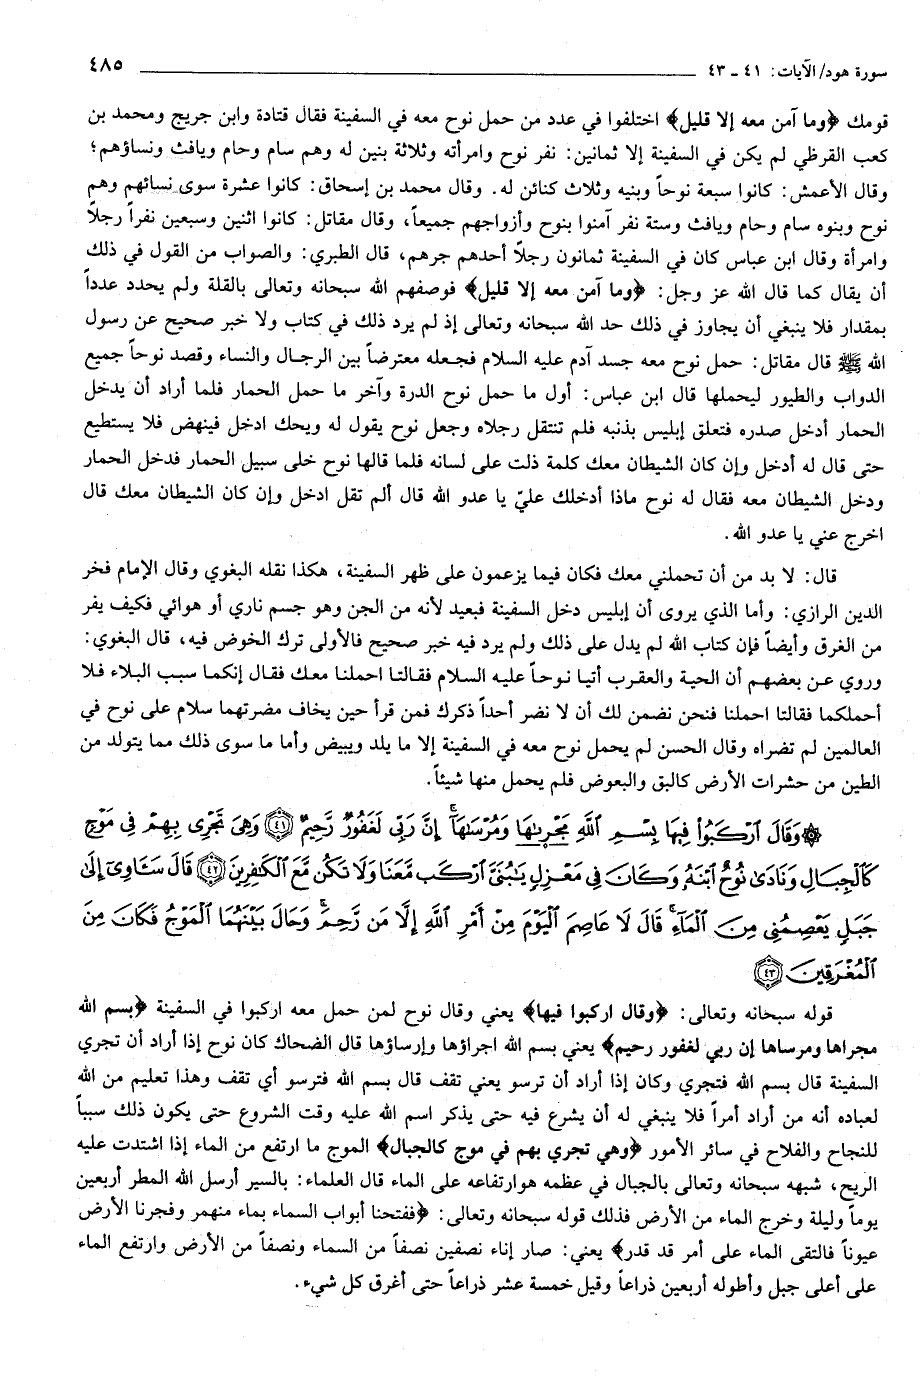 سورة هود/ الآيات: ٤١ ـ ٤٣ ٤٨٥
قومك ﴿وما آمن معه إلا قليل﴾ اختلفوا في عدد من حمل نوح معه في السفينة فقال قتادة وابن جريج ومحمد بن
كعب القرظي لم يكن في السفينة إلا ثمانين: نفر نوح وامرأته وثلاثة بنين له وهم سام وحام ويافث ونساؤهم؛
وقال الأعمش: كانوا سبعة نوحاً وبنيه وثلاث كنائن له. وقال محمد بن إسحاق: كانوا عشرة سوى نسائهم وهم
نوح وبنوه سام وحام ويافث وستة نفر آمنوا بنوح وأزواجهم جميعاً، وقال مقاتل: كانوا اثنين وسبعين نفراً رجلاً
وامرأة وقال ابن عباس كان في السفينة ثمانون رجلاً أحدهم جرهم، قال الطبري: والصواب من القول في ذلك
أن يقال كما قال الله عز وجل: ﴿وما آمن معه إلا قليل﴾ فوصفهم الله سبحانه وتعالى بالقلة ولم يحدد عدداً
بمقدار فلا ينبغي أن يجاوز في ذلك حد الله سبحانه وتعالى إذ لم يرد ذلك في كتاب ولا خبر صحيح عن رسول
الله ﷺ قال مقاتل: حمل نوح معه جسد آدم عليه السلام فجعله معترضاً بين الرجال والنساء وقصد نوحاً جميع
الدواب والطيور ليحملها قال ابن عباس: أول ما حمل نوح الدرة وآخر ما حمل الحمار فلما أراد أن يدخل
الحمار أدخل صدره فتعلق إبليس بذنبه فلم تنتقل رجلاه وجعل نوح يقول له ويحك ادخل فينهض فلا يستطيع
حتى قال له أدخل وإن كان الشيطان معك كلمة ذلت على لسانه فلما قالها نوح خلى سبيل الحمار فدخل الحمار
ودخل الشيطان معه فقال له نوح ماذا أدخلك عليّ يا عدو الله قال ألم تقل ادخل وإن كان الشيطان معك قال
اخرج عني يا عدو الله.
قال: لا بد من أن تحملني معك فكان فيما يزعمون على ظهر السفينة، هكذا نقله البغوي وقال الإمام فخر
الدين الرازي: وأما الذي يروى أن إبليس دخل السفينة فبعيد لأنه من الجن وهو جسم ناري أو هوائي فكيف يفر
من الغرق وأيضاً فإن كتاب الله لم يدل على ذلك ولم يرد فيه خبر صحيح فالأولى ترك الخوض فيه، قال البغوي:
وروي عن بعضهم أن الحية والعقرب أتيا نوحاً عليه السلام فقالتا احملنا معك فقال إنكما سبب البلاء فلا
أحملكما فقالتا احملنا فنحن نضمن لك أن لا نضر أحداً ذكرك فمن قرأ حين يخاف مضرتهما سلام على نوح في
العالمين لم تضراه وقال الحسن لم يحمل نوح معه في السفينة إلا ما يلد ويبيض وأما ما سوى ذلك مما يتولد من
الطين من حشرات الأرض كالبق والبعوض فلم يحمل منها شيئاً.
۞ وَقَالَ ٱرْكَبُوا۟ فِيهَا بِسْمِ ٱللَّهِ مَجْر۪ىٰهَا وَمُرْسَىٰهَآ ۚ إِنَّ رَبِّى لَغَفُورٌ رَّحِيمٌ ﴿٤١﴾ وَهِىَ تَجْرِى بِهِمْ فِى مَوْجٍ
كَٱلْجِبَالِ وَنَادَىٰ نُوحٌ ٱبْنَهُۥ وَكَانَ فِى مَعْزِلٍ يَٰبُنَىَّ ٱرْكَب مَّعَنَا وَلَا تَكُن مَّعَ ٱلْكَٰفِرِينَ ﴿٤٢﴾ قَالَ سَـَٔاوِىٓ إِلَىٰ
جَبَلٍ يَعْصِمُنِى مِنَ ٱلْمَآءِ ۚ قَالَ لَا عَاصِمَ ٱلْيَوْمَ مِنْ أَمْرِ ٱللَّهِ إِلَّا مَن رَّحِمَ ۚ وَحَالَ بَيْنَهُمَا ٱلْمَوْجُ فَكَانَ مِنَ
ٱلْمُغْرَقِينَ ﴿٤٣﴾
قوله سبحانه وتعالى: ﴿وقال اركبوا فيها﴾ يعني وقال نوح لمن حمل معه اركبوا في السفينة ﴿بسم الله
مجراها ومرساها إن ربي لغفور رحيم﴾ يعني بسم الله اجراؤها وإرساؤها قال الضحاك كان نوح إذا أراد أن تجري
السفينة قال بسم الله فتجري وكان إذا أراد أن ترسو يعني تقف قال بسم الله فترسو أي تقف وهذا تعليم من الله
لعباده أنه من أراد أمراً فلا ينبغي له أن يشرع فيه حتى يذكر اسم الله عليه وقت الشروع حتى يكون ذلك سبباً
للنجاح والفلاح في سائر الأمور ﴿وهي تجري بهم في موج كالجبال﴾ الموج ما ارتفع من الماء إذا اشتدت عليه
الريح، شبهه سبحانه وتعالى بالجبال في عظمه هوارتفاعه على الماء قال العلماء: بالسير أرسل الله المطر أربعين
يوماً وليلة وخرج الماء من الأرض فذلك قوله سبحانه وتعالى: ﴿ففتحنا أبواب السماء بماء منهمر وفجرنا الأرض
عيوناً فالتقى الماء على أمر قد قدر﴾ يعني: صار إناء نصفين نصفاً من السماء ونصفاً من الأرض وارتفع الماء
على أعلى جبل وأطوله أربعين ذراعاً وقيل خمسة عشر ذراعاً حتى أغرق كل شيء.